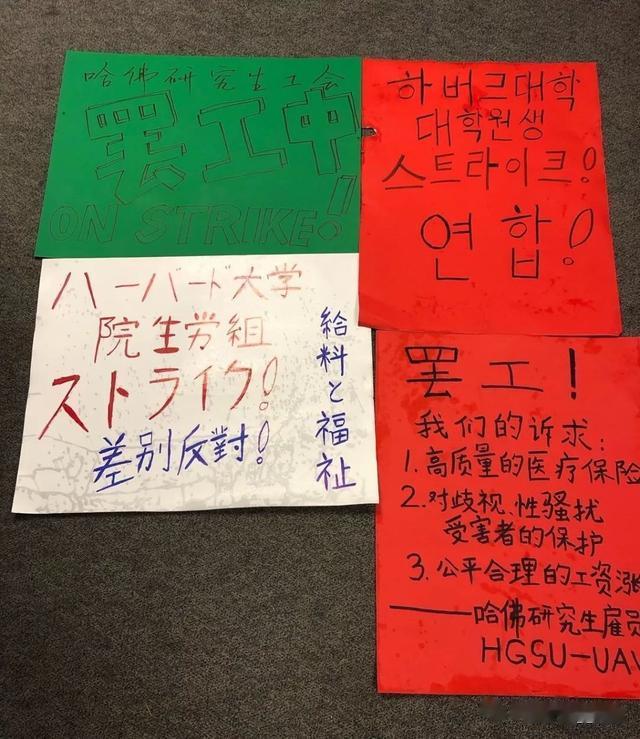 哈佛研究生工会
罢工中
ON STRIKE!
하버드대학
대학원생
스트라이크!
연합!
ハーバード大学
院生労組
ストライク!
差別反対!
給料と福祉
罢工!
我们的诉求:
1. 高质量的医疗保险
2. 对歧视、性骚扰
受害者的保护
3. 公平合理的工资涨
——哈佛研究生雇员
HGSU-UAW